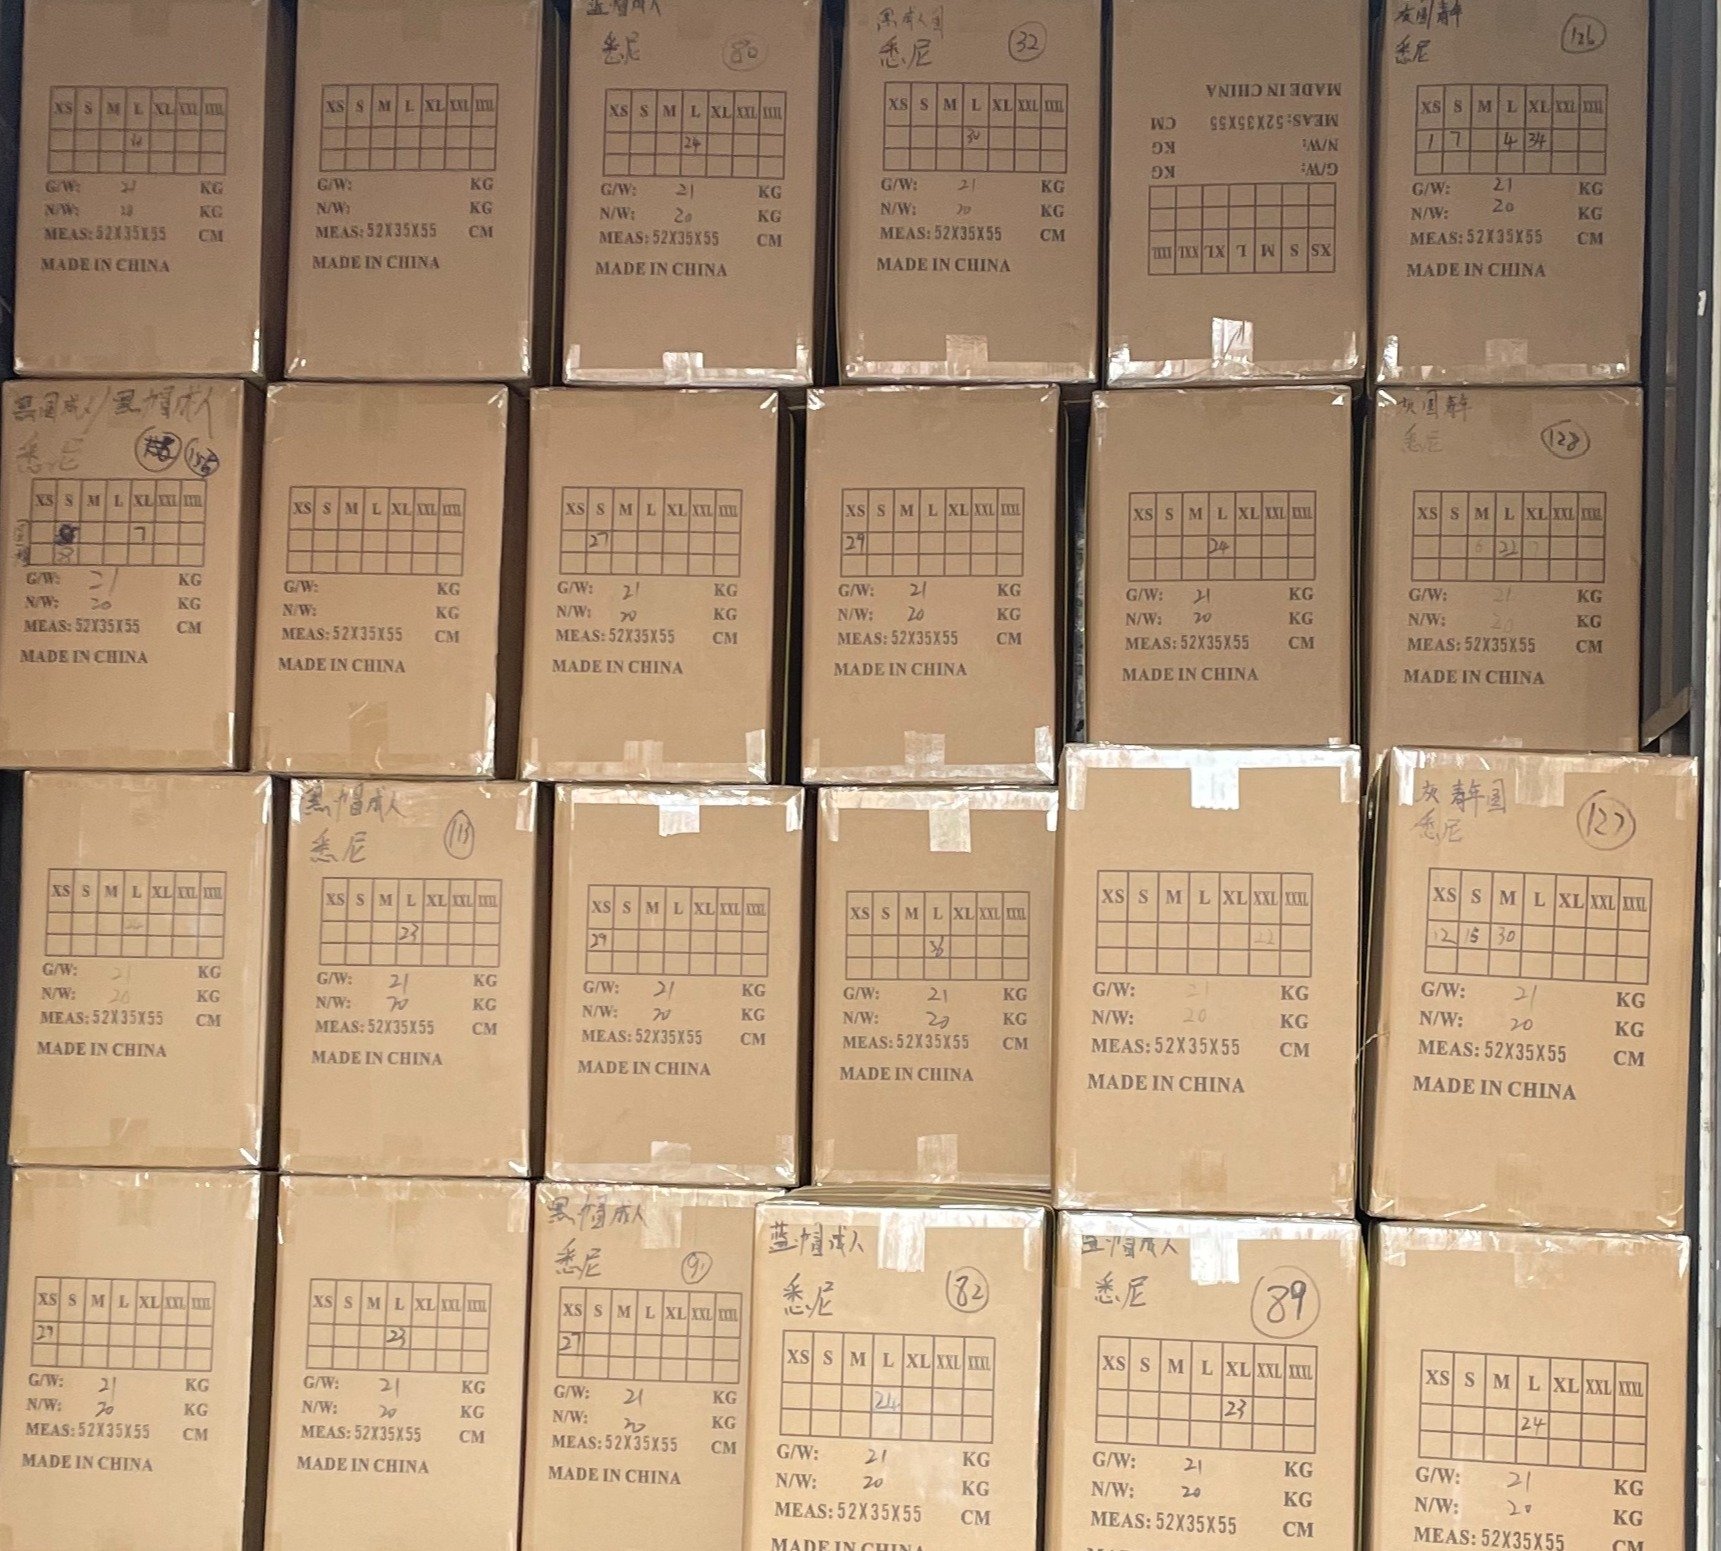 XS S M L XL XXL XXXL
G/W: 21 KG
N/W: KG
MEAS: 52X35X55 CM
MADE IN CHINA
XS S M L XL XXL XXXL
G/W: KG
N/W: KG
MEAS: 52X35X55 CM
MADE IN CHINA
蓝帽成人
悉尼 80
XS S M L XL XXL XXXL
24
G/W: 21 KG
N/W: 20 KG
MEAS: 52X35X55 CM
MADE IN CHINA
黑成人圆
悉尼 32
XS S M L XL XXL XXXL
30
G/W: 21 KG
N/W: 20 KG
MEAS: 52X35X55 CM
MADE IN CHINA
XS S M L XL XXL XXXL
G/W: KG
N/W: KG
MEAS: 52X35X55 CM
MADE IN CHINA
灰圆青年
悉尼 126
XS S M L XL XXL XXXL
1 7 4 34
G/W: 21 KG
N/W: 20 KG
MEAS: 52X35X55 CM
MADE IN CHINA
黑圆成人/黑帽成人
悉尼
XS S M L XL XXL XXXL
7
G/W: 21 KG
N/W: 20 KG
MEAS: 52X35X55 CM
MADE IN CHINA
XS S M L XL XXL XXXL
G/W: KG
N/W: KG
MEAS: 52X35X55 CM
MADE IN CHINA
XS S M L XL XXL XXXL
27
G/W: 21 KG
N/W: 20 KG
MEAS: 52X35X55 CM
MADE IN CHINA
XS S M L XL XXL XXXL
29
G/W: 21 KG
N/W: 20 KG
MEAS: 52X35X55 CM
MADE IN CHINA
XS S M L XL XXL XXXL
24
G/W: 21 KG
N/W: 20 KG
MEAS: 52X35X55 CM
MADE IN CHINA
灰圆青年
悉尼 128
XS S M L XL XXL XXXL
6 22
G/W: 21 KG
N/W: 20 KG
MEAS: 52X35X55 CM
MADE IN CHINA
XS S M L XL XXL XXXL
24
G/W: 21 KG
N/W: 20 KG
MEAS: 52X35X55 CM
MADE IN CHINA
黑帽成人
悉尼 113
XS S M L XL XXL XXXL
23
G/W: 21 KG
N/W: 20 KG
MEAS: 52X35X55 CM
MADE IN CHINA
XS S M L XL XXL XXXL
29
G/W: 21 KG
N/W: 20 KG
MEAS: 52X35X55 CM
MADE IN CHINA
XS S M L XL XXL XXXL
G/W: 21 KG
N/W: 20 KG
MEAS: 52X35X55 CM
MADE IN CHINA
XS S M L XL XXL XXXL
22
G/W: 21 KG
N/W: 20 KG
MEAS: 52X35X55 CM
MADE IN CHINA
灰青年圆
悉尼 127
XS S M L XL XXL XXXL
12 15 30
G/W: 21 KG
N/W: 20 KG
MEAS: 52X35X55 CM
MADE IN CHINA
XS S M L XL XXL XXXL
29
G/W: 21 KG
N/W: 20 KG
MEAS: 52X35X55 CM
MADE IN CHINA
XS S M L XL XXL XXXL
23
G/W: 21 KG
N/W: 20 KG
MEAS: 52X35X55 CM
MADE IN CHINA
黑帽成人
悉尼 91
XS S M L XL XXL XXXL
27
G/W: 21 KG
N/W: 20 KG
MEAS: 52X35X55 CM
MADE IN CHINA
蓝帽成人
悉尼 82
XS S M L XL XXL XXXL
24
G/W: 21 KG
N/W: 20 KG
MEAS: 52X35X55 CM
MADE IN CHINA
蓝帽成人
悉尼 89
XS S M L XL XXL XXXL
23
G/W: 21 KG
N/W: 20 KG
MEAS: 52X35X55 CM
MADE IN CHINA
XS S M L XL XXL XXXL
24
G/W: 21 KG
N/W: 20 KG
MEAS: 52X35X55 CM